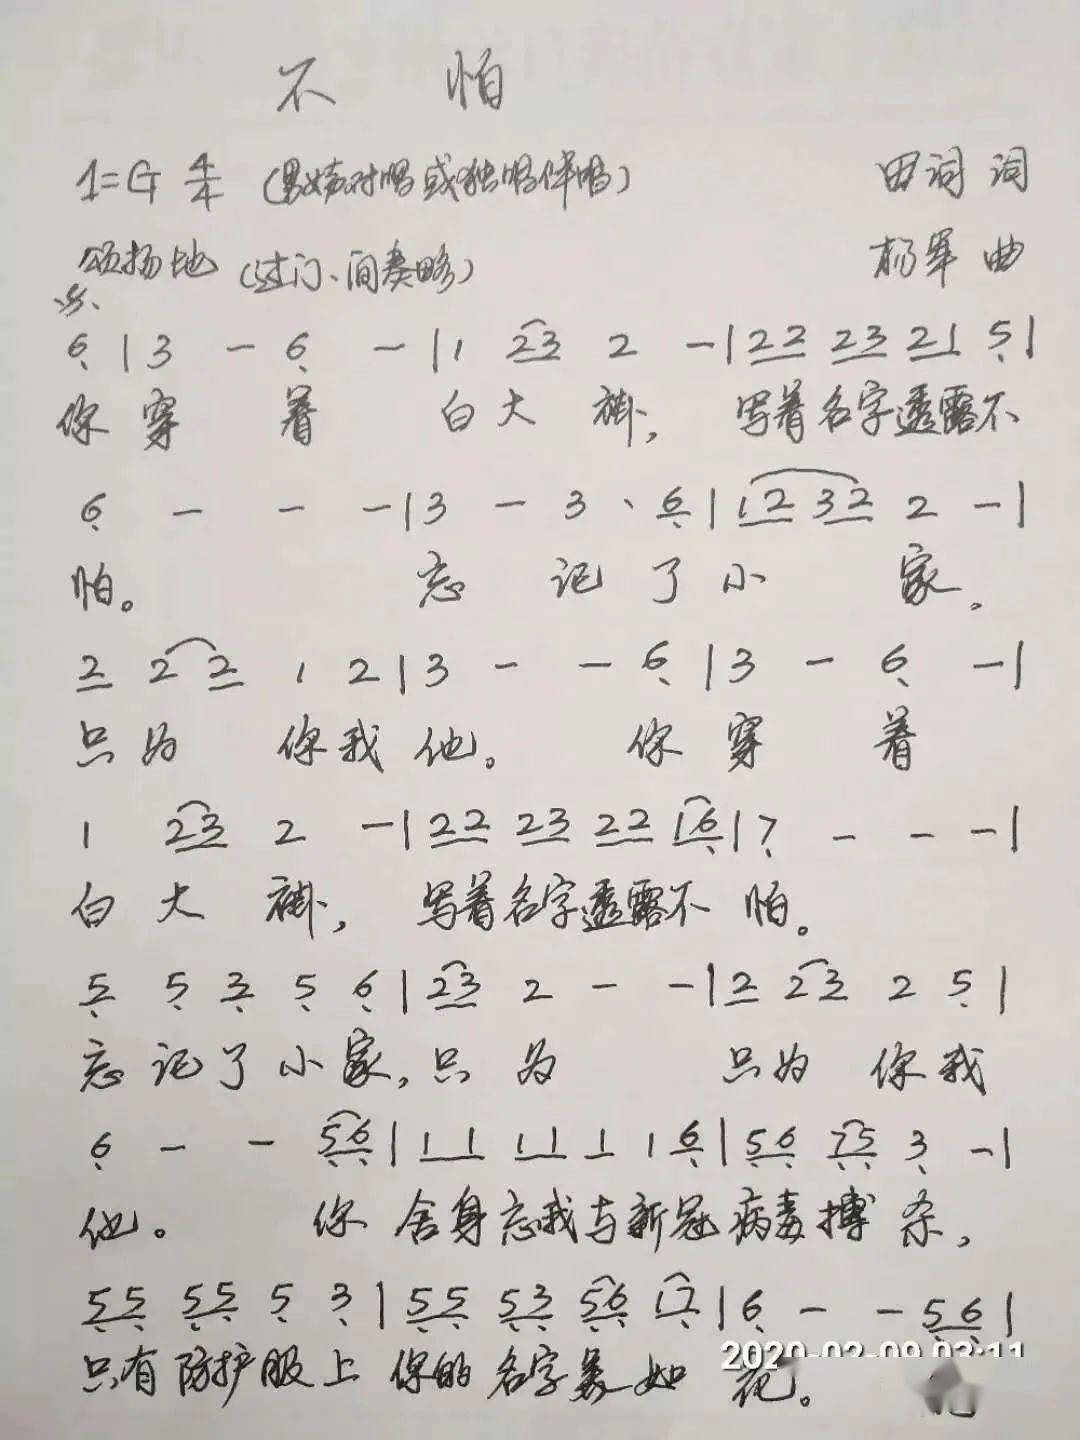 不 怕
1=G 4/4 (男女声对唱或独唱伴唱) 田词 词
颂扬地 (过门、间奏略) 杨军 曲
6 | 3 - 6 - | 1 23 2 - | 22 23 21 5 |
你 穿 着 白 大 褂, 写着名字透露不
6 - - - | 3 - 3 · 6 | 12 32 2 - |
怕。 忘 记 了 小 家。
2 2 2 1 2 | 3 - - 6 | 3 - 6 - |
只 为 你 我 他。 你 穿 着
1 23 2 - | 22 23 22 16 | 7 - - - |
白 大 褂, 写着名字透露不 怕。
5 5 3 5 6 | 23 2 - - | 2 23 2 5 |
忘 记 了 小 家, 只 为 只为 你 我
6 - - 56 | 11 11 1 1 6 | 56 75 3 - |
他。 你 舍身忘我与新冠病毒搏 杀,
55 55 5 3 | 55 53 56 17 | 6 - - 56 |
只有防护服上 你的名字美如 花。
2020-02-09 03:11